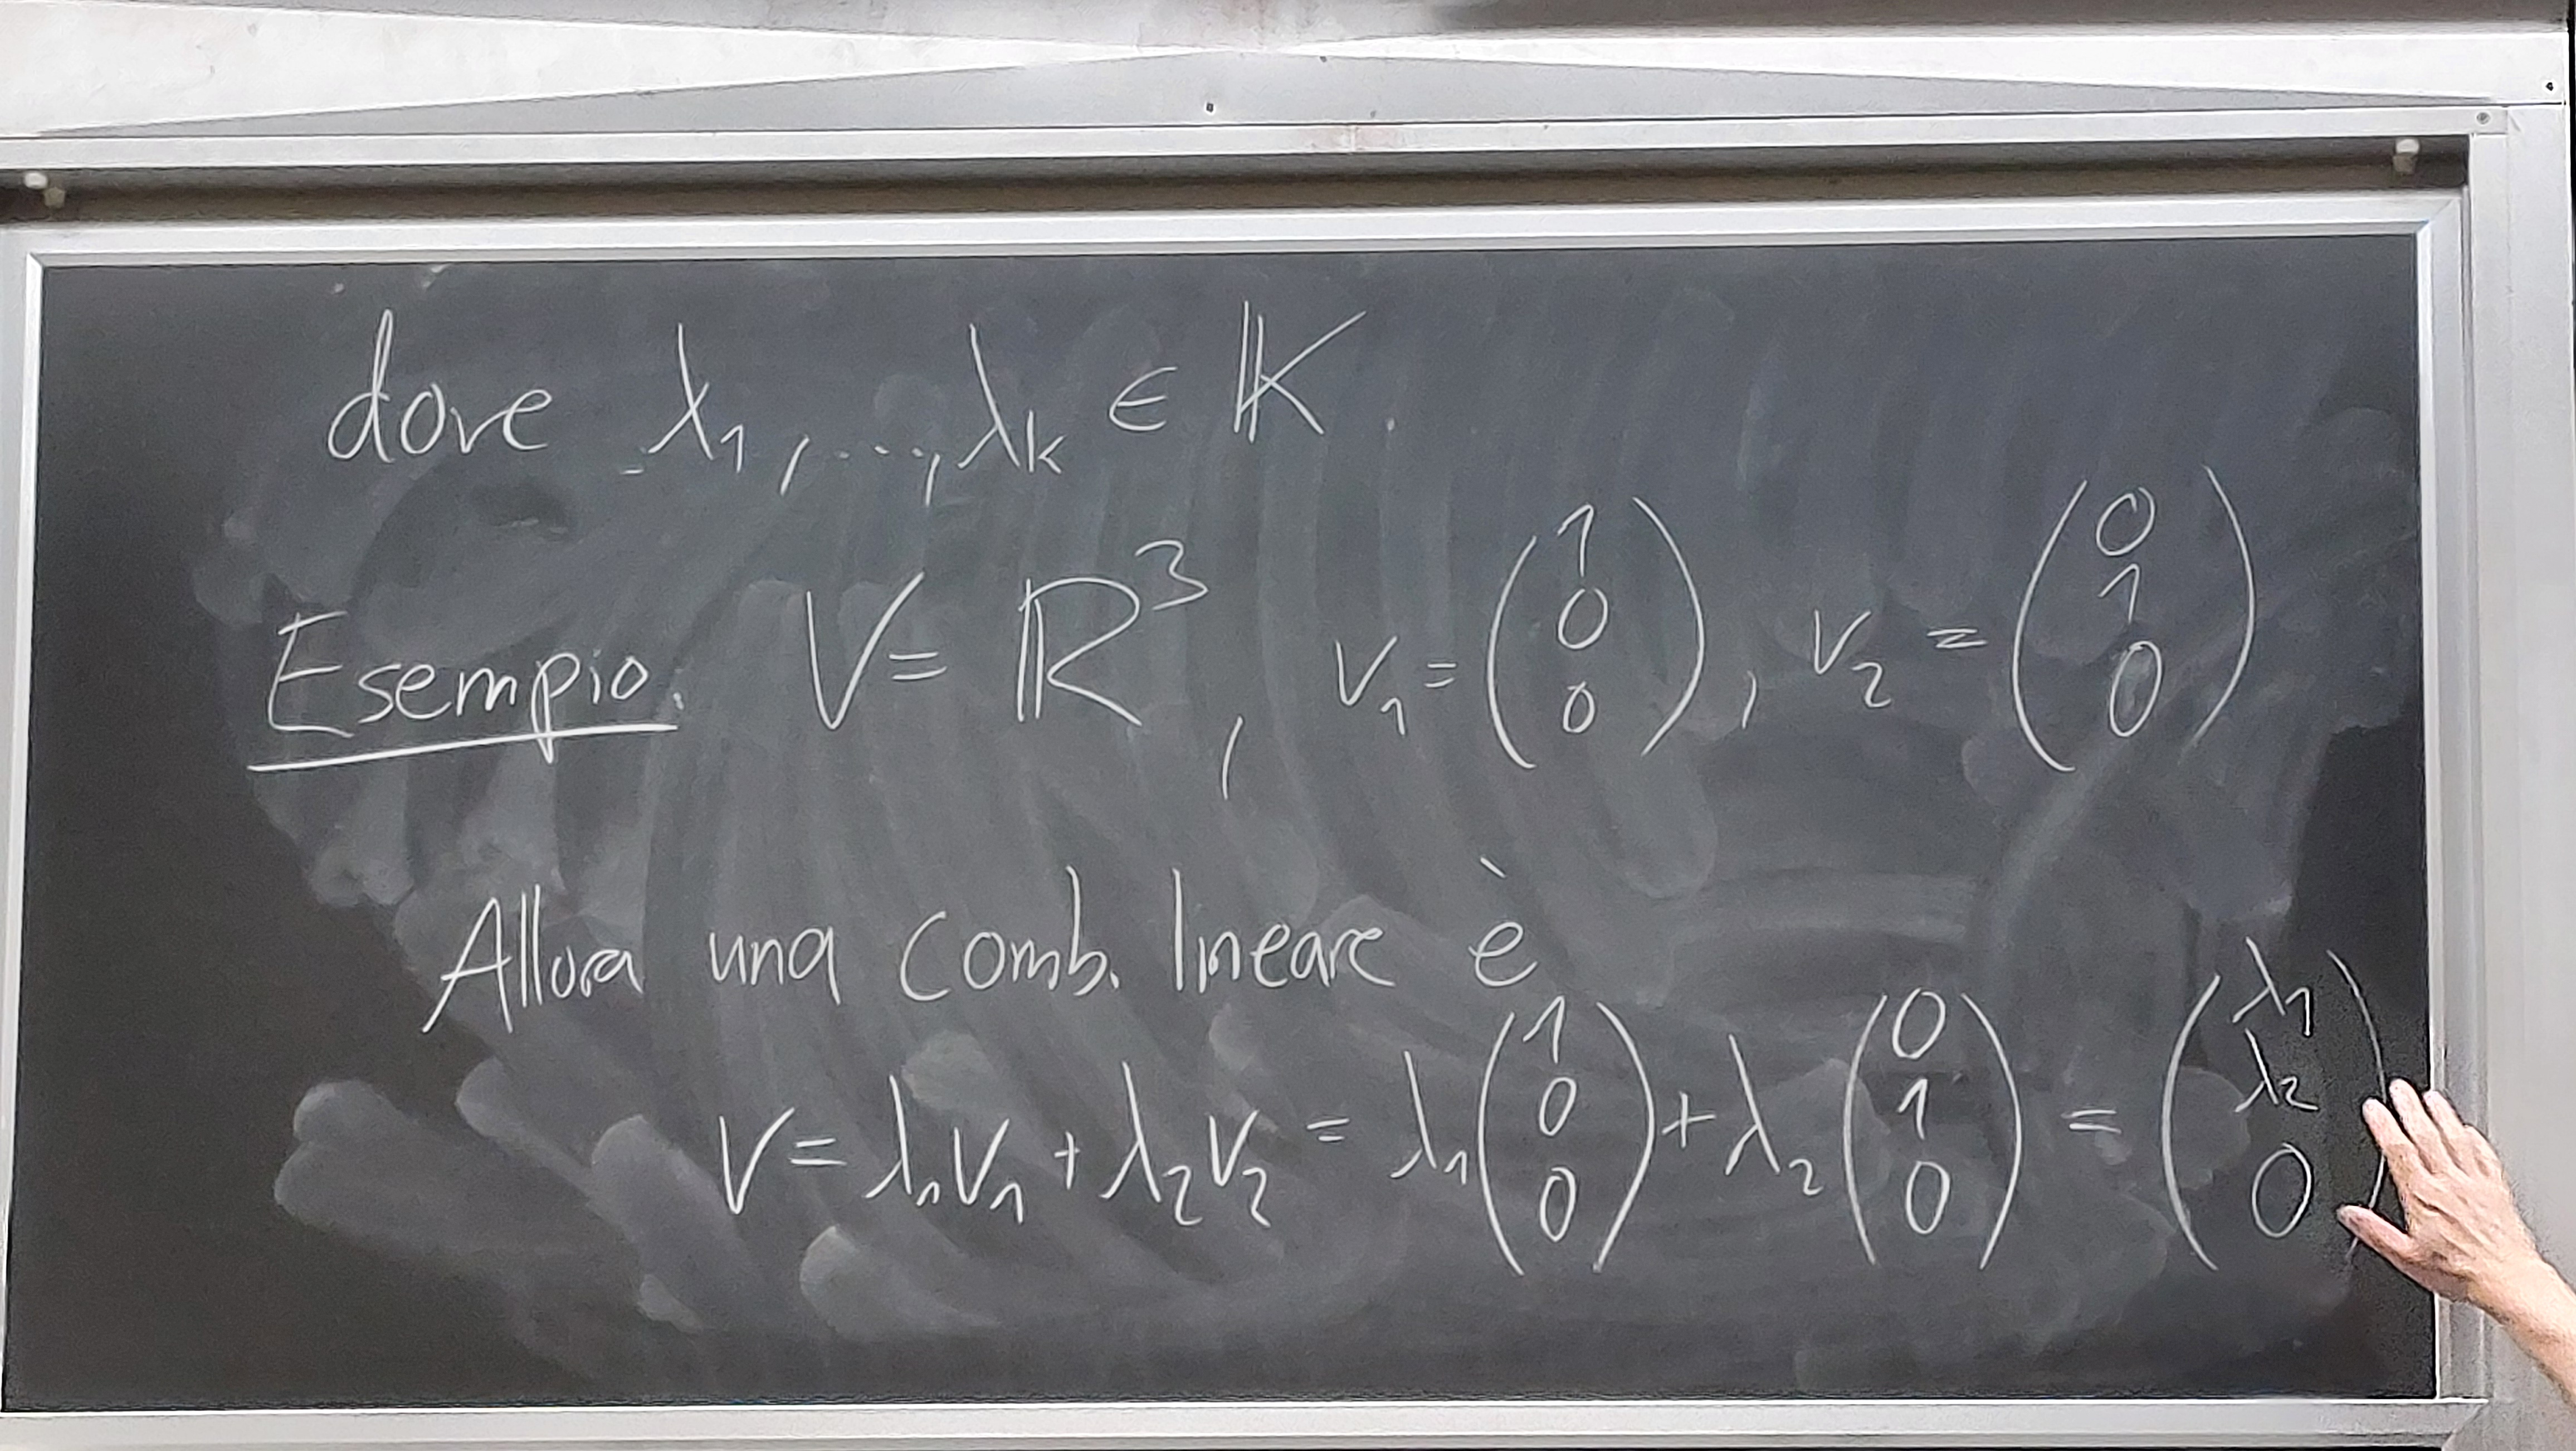 dove λ₁,...,λₖ ∈ 𝕂.
Esempio. V = ℝ³, v₁ = (1 0 0), v₂ = (0 1 0)
Allora una comb. lineare è
v = λ₁v₁ + λ₂v₂ = λ₁(1 0 0) + λ₂(0 1 0) = (λ₁ λ₂ 0)